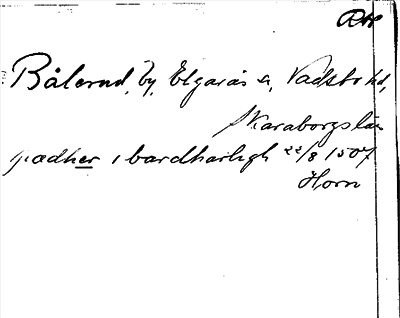 Bålerud, by, Elgarås sn, Vadsbo hd,
Skaraborgs län
i bardhærligh 22/8 1507
Horn